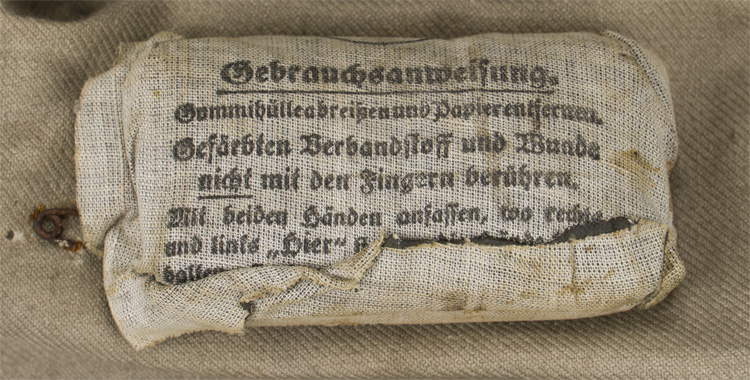 Gebrauchsanweisung.
Gummihülle abreißen und Papier entfernen.
Gefärbten Verbandstoff und Wunde
nicht mit den Fingern berühren.
Mit beiden Händen anfassen, wo rechts
und links „Hier“